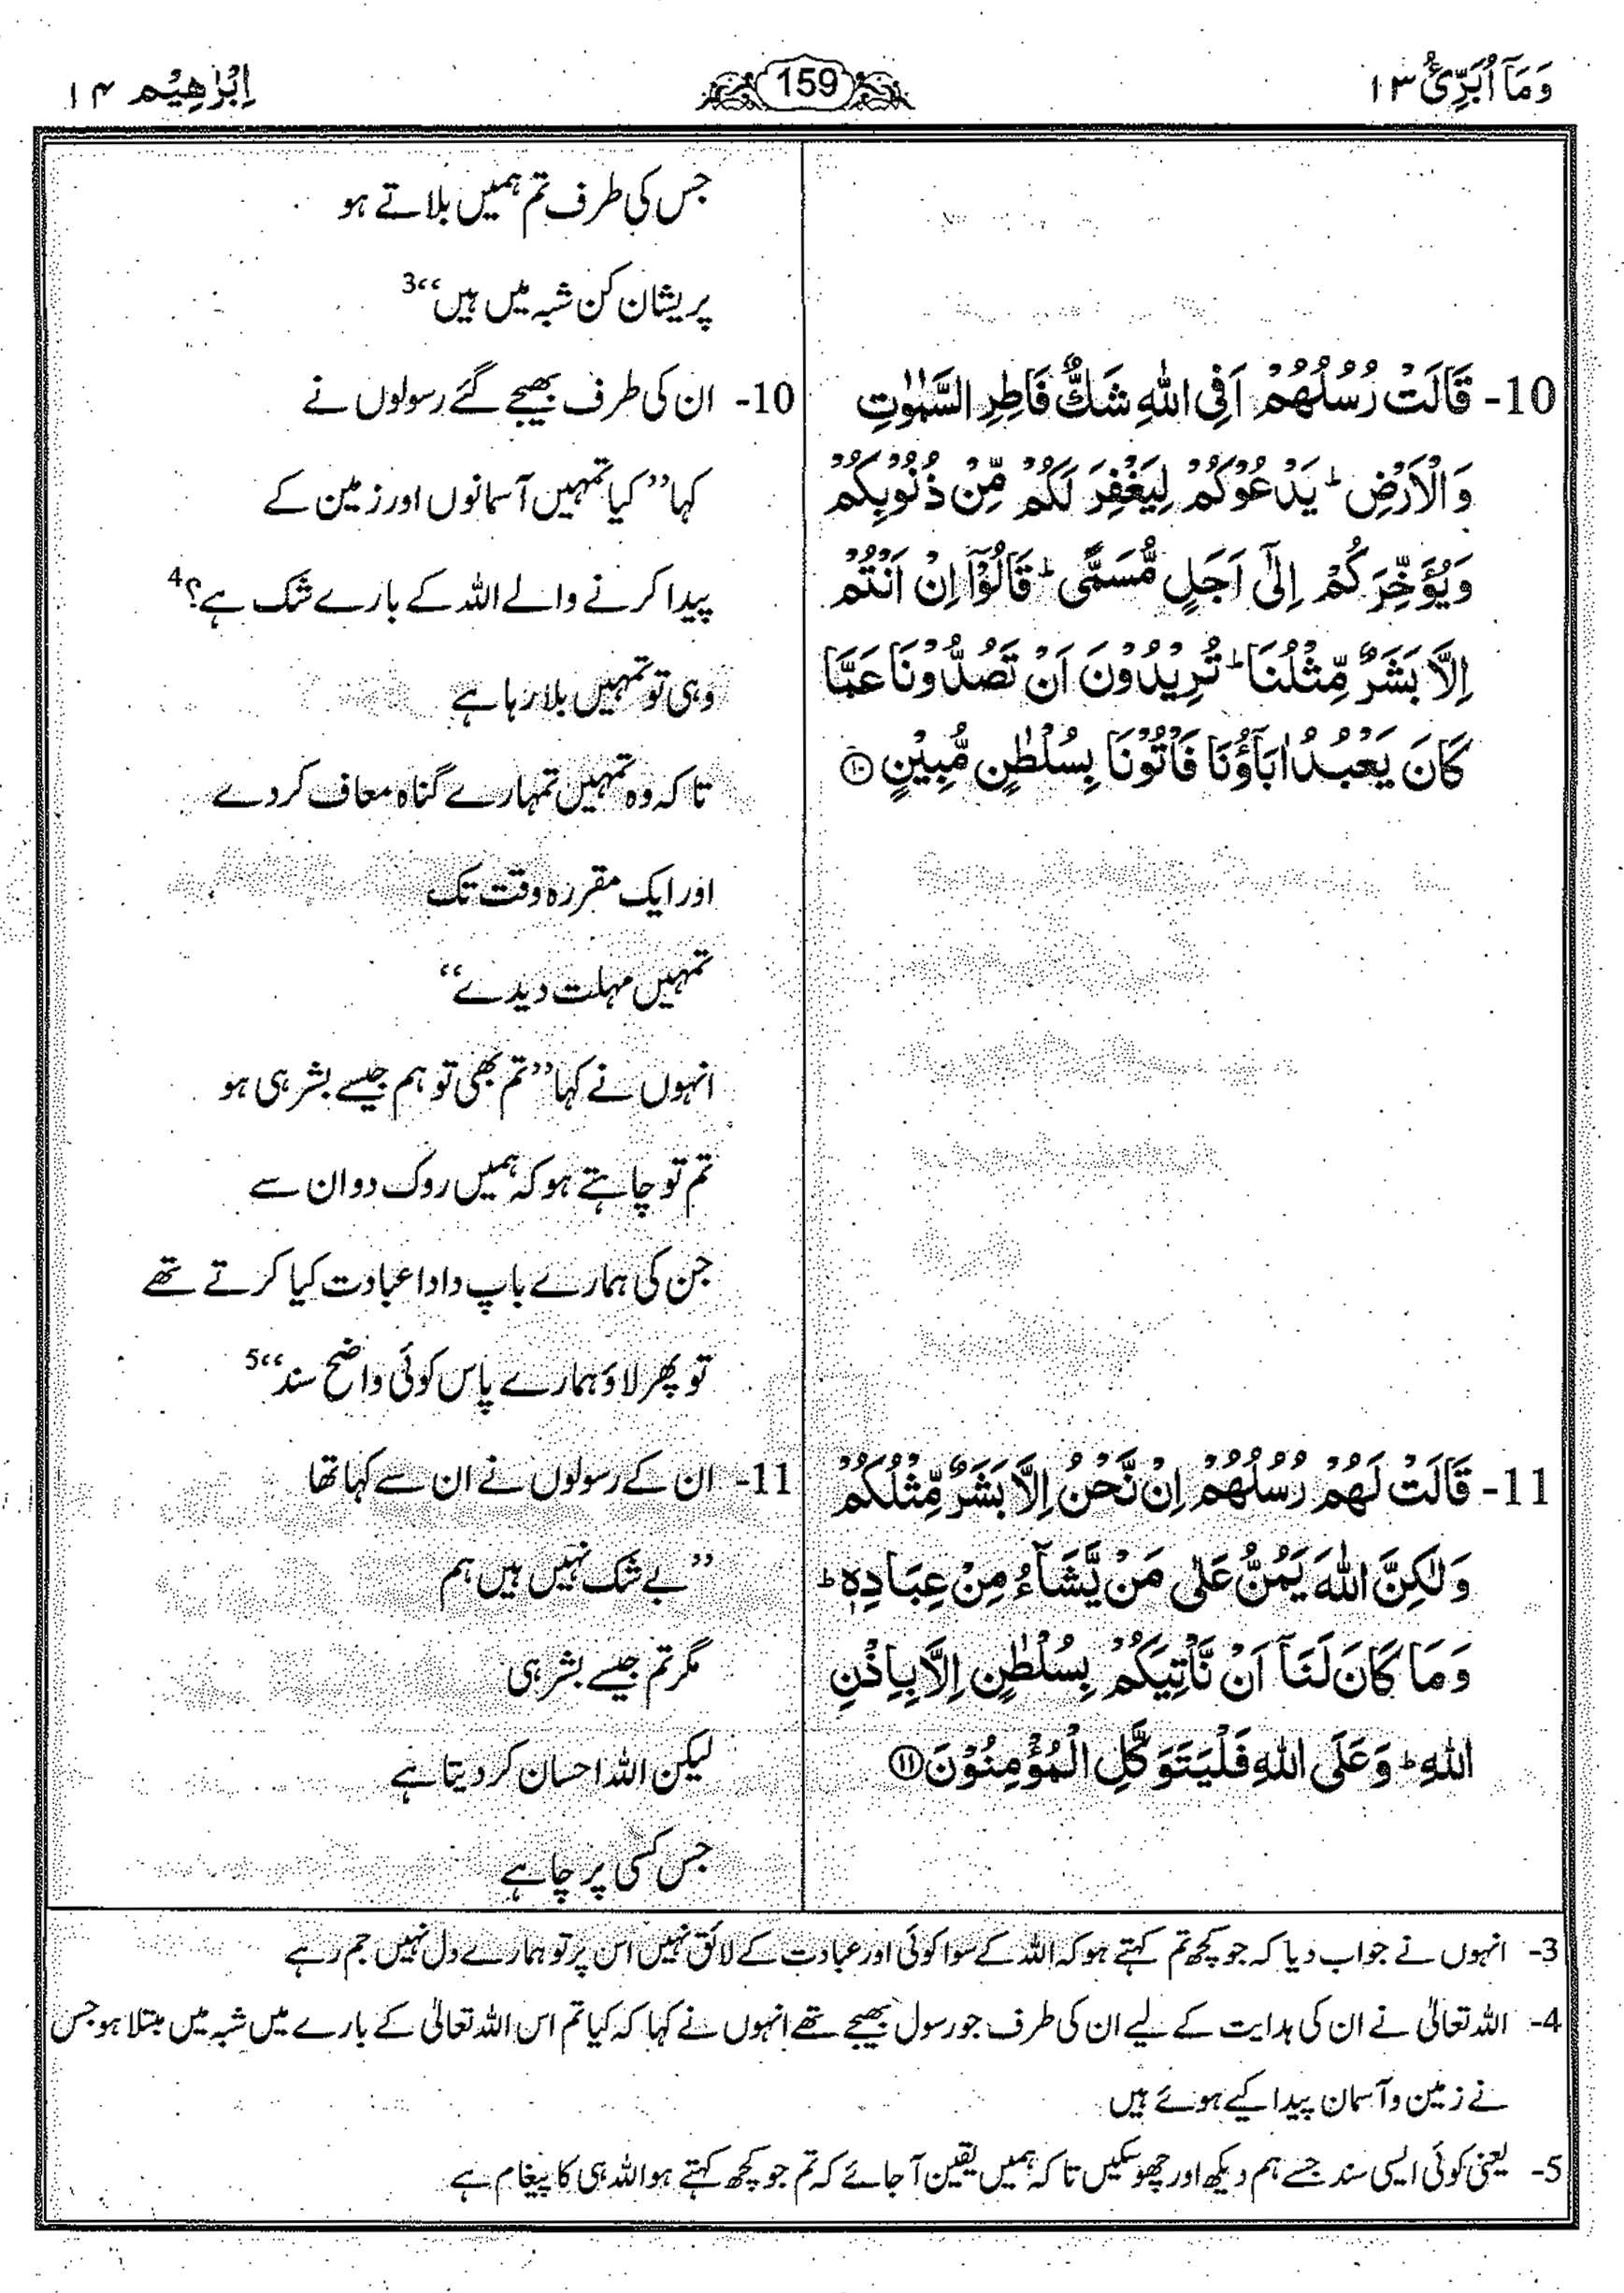 وَمَآ اُبَرِّئُ ۱۳
159
اِبْرٰهِیْم ۱۴
10- قَالَتْ رُسُلُهُمْ اَفِی اللّٰهِ شَكٌّ فَاطِرِ السَّمٰوٰتِ
وَالْاَرْضِ ؕ یَدْعُوْكُمْ لِیَغْفِرَ لَكُمْ مِّنْ ذُنُوْبِكُمْ
وَیُؤَخِّرَكُمْ اِلٰۤی اَجَلٍ مُّسَمًّی ؕ قَالُوْۤا اِنْ اَنْتُمْ
اِلَّا بَشَرٌ مِّثْلُنَا ؕ تُرِیْدُوْنَ اَنْ تَصُدُّوْنَا عَمَّا
كَانَ یَعْبُدُ اٰبَآؤُنَا فَاْتُوْنَا بِسُلْطٰنٍ مُّبِیْنٍ ۝۱۰
11- قَالَتْ لَهُمْ رُسُلُهُمْ اِنْ نَّحْنُ اِلَّا بَشَرٌ مِّثْلُكُمْ
وَلٰكِنَّ اللّٰهَ یَمُنُّ عَلٰی مَنْ یَّشَآءُ مِنْ عِبَادِهٖ ؕ
وَمَا كَانَ لَنَاۤ اَنْ نَّاْتِیَكُمْ بِسُلْطٰنٍ اِلَّا بِاِذْنِ
اللّٰهِ ؕ وَعَلَی اللّٰهِ فَلْیَتَوَكَّلِ الْمُؤْمِنُوْنَ ۝۱۱
جس کی طرف تم ہمیں بلاتے ہو
پریشان کن شبہ میں ہیں“3
10- ان کی طرف بھیجے گئے رسولوں نے
کہا ”کیا تمہیں آسمانوں اور زمین کے
پیدا کرنے والے اللہ کے بارے شک ہے؟4
وہی تو تمہیں بلا رہا ہے
تا کہ وہ تمہیں تمہارے گناہ معاف کردے
اور ایک مقررہ وقت تک
تمہیں مہلت دیدے“
انہوں نے کہا ”تم بھی تو ہم جیسے بشر ہی ہو
تم تو چاہتے ہو کہ ہمیں روک دو ان سے
جن کی ہمارے باپ دادا عبادت کیا کرتے تھے
تو پھر لاؤ ہمارے پاس کوئی واضح سند“5
11- ان کے رسولوں نے ان سے کہا تھا
”بے شک نہیں ہیں ہم
مگر تم جیسے بشر ہی
لیکن اللہ احسان کر دیتا ہے
جس کسی پر چاہے
3- انہوں نے جواب دیا کہ جو کچھ تم کہتے ہو کہ اللہ کے سوا کوئی اور عبادت کے لائق نہیں اس پر تو ہمارے دل نہیں جم رہے
4- اللہ تعالیٰ نے ان کی ہدایت کے لیے ان کی طرف جو رسول بھیجے تھے انہوں نے کہا کہ کیا تم اس اللہ تعالیٰ کے بارے میں شبہ میں مبتلا ہو جس
نے زمین و آسمان پیدا کیے ہوئے ہیں
5- یعنی کوئی ایسی سند جسے ہم دیکھ اور چھو سکیں تا کہ ہمیں یقین آ جائے کہ تم جو کچھ کہتے ہو اللہ ہی کا پیغام ہے